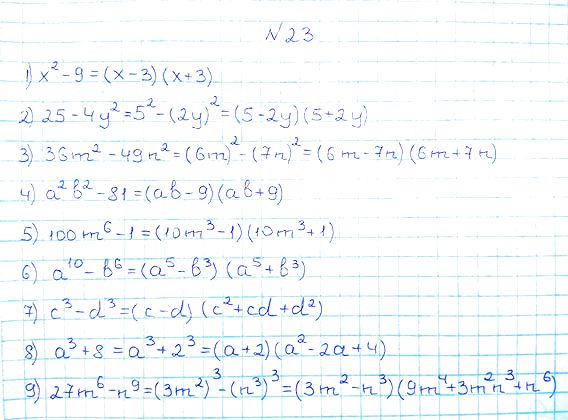 N23
1) x² - 9 = (x - 3) (x + 3)
2) 25 - 4y² = 5² - (2y)² = (5 - 2y) (5 + 2y)
3) 36m² - 49n² = (6m)² - (7n)² = (6m - 7n) (6m + 7n)
4) a²b² - 81 = (ab - 9) (ab + 9)
5) 100m⁶ - 1 = (10m³ - 1) (10m³ + 1)
6) a¹⁰ - b⁶ = (a⁵ - b³) (a⁵ + b³)
7) c³ - d³ = (c - d) (c² + cd + d²)
8) a³ + 8 = a³ + 2³ = (a + 2) (a² - 2a + 4)
9) 27m⁶ - n⁹ = (3m²)³ - (n³)³ = (3m² - n³) (9m⁴ + 3m²n³ + n⁶)